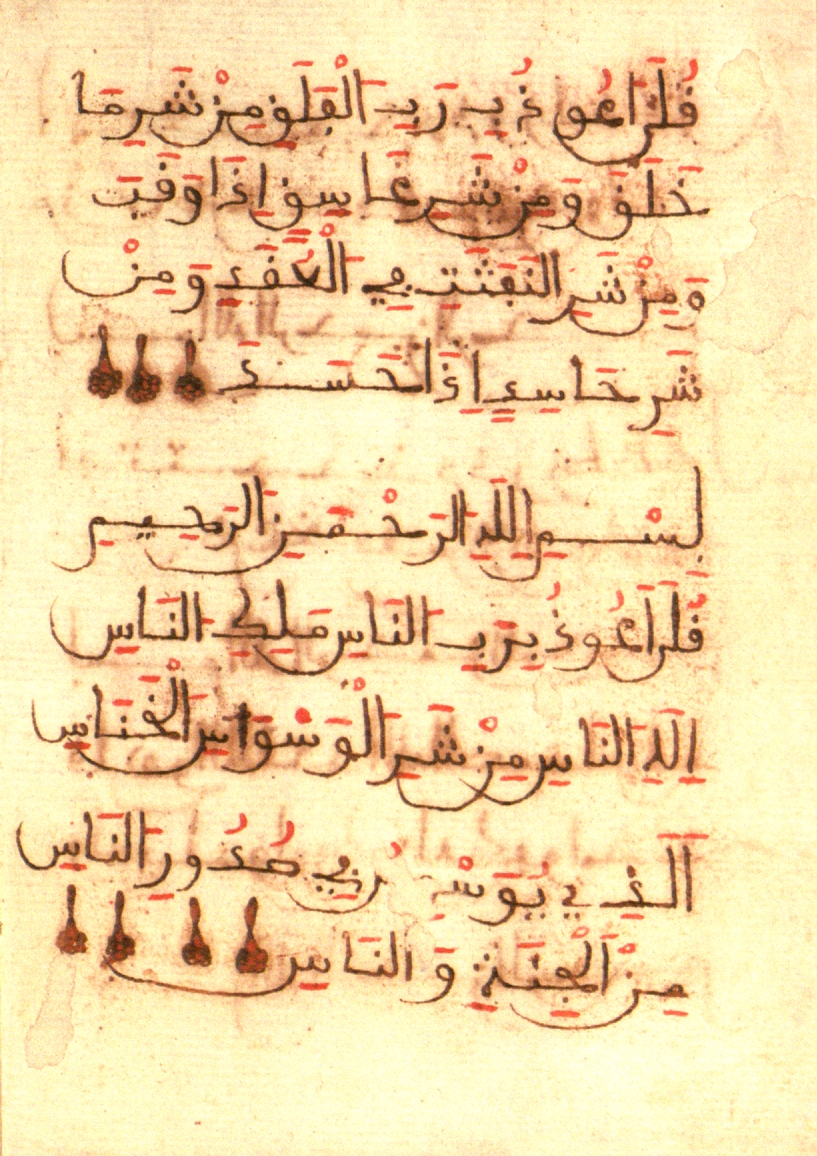 قُلَ اَعُوذُ بِرَبِّ الْفَلَقِ مِنْ شَرِّ مَا
خَلَقَ وَمِنْ شَرِّ غَاسِقٍ اِذَا وَقَبَ
وَمِنْ شَرِّ النَّفَّثَتِ فِي الْعُقَدِ وَمِنْ
شَرِّ حَاسِدٍ اِذَا حَسَدَ
بِسْمِ اللَّهِ الرَّحْمَنِ الرَّحِيمِ
قُلَ اَعُوذُ بِرَبِّ النَّاسِ مَلِكِ النَّاسِ
اِلَهِ النَّاسِ مِنْ شَرِّ الْوَسْوَاسِ الْخَنَّاسِ
الَّذِي يُوَسْوِسُ فِي صُدُورِ النَّاسِ
مِنَ الْجِنَّةِ وَالنَّاسِ